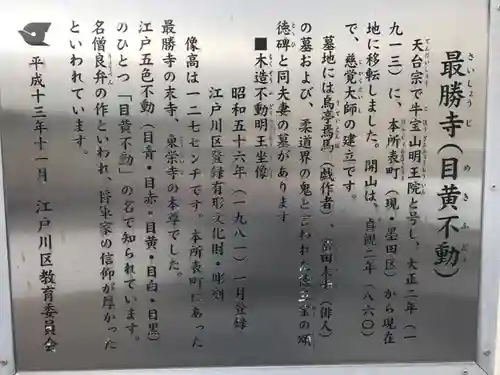 最勝寺(目黄不動)
天台宗で牛宝山明王院と号し、大正二年(一
九一三)に、本所表町(現・墨田区)から現在
地に移転しました。開山は、貞観二年(八六〇)
で、慈覚大師の建立です。
墓地には烏亭焉馬(戯作者)、富田木歩(俳人)
の墓および、柔道界の鬼と言われた徳三宝の頌
徳碑と同夫妻の墓があります
■木造不動明王坐像
昭和五十六年(一九八一)一月登録
江戸川区登録有形文化財・彫刻
像高は一二七センチです。本所表町にあった
最勝寺の末寺、東栄寺の本尊でした。
江戸五色不動(目青・目赤・目黄・目白・目黒)
のひとつ「目黄不動」の名で知られています。
名僧良弁の作といわれ、将軍家の信仰が厚かった
といわれています。
平成十三年十一月 江戸川区教育委員会